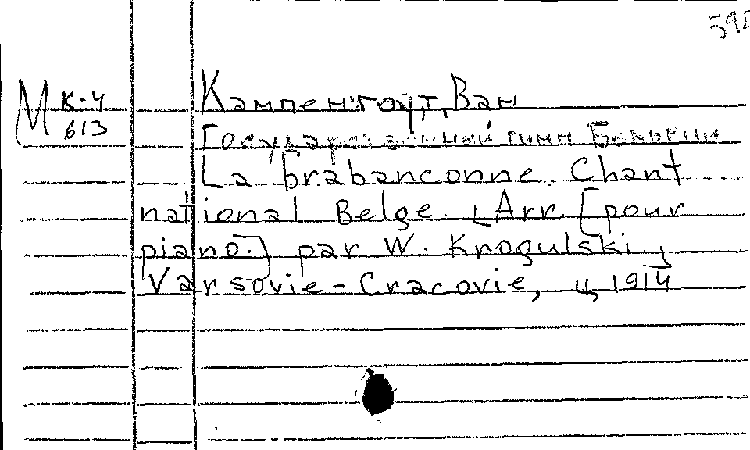 М к-4
613
Кампенгоут, Ван
Государственный гимн Бельгии
La brabanconne. Chant
national Belge. Arr [pour
piano.] par W. Krogulski,
Varsovie-Cracovie, ц, 1914